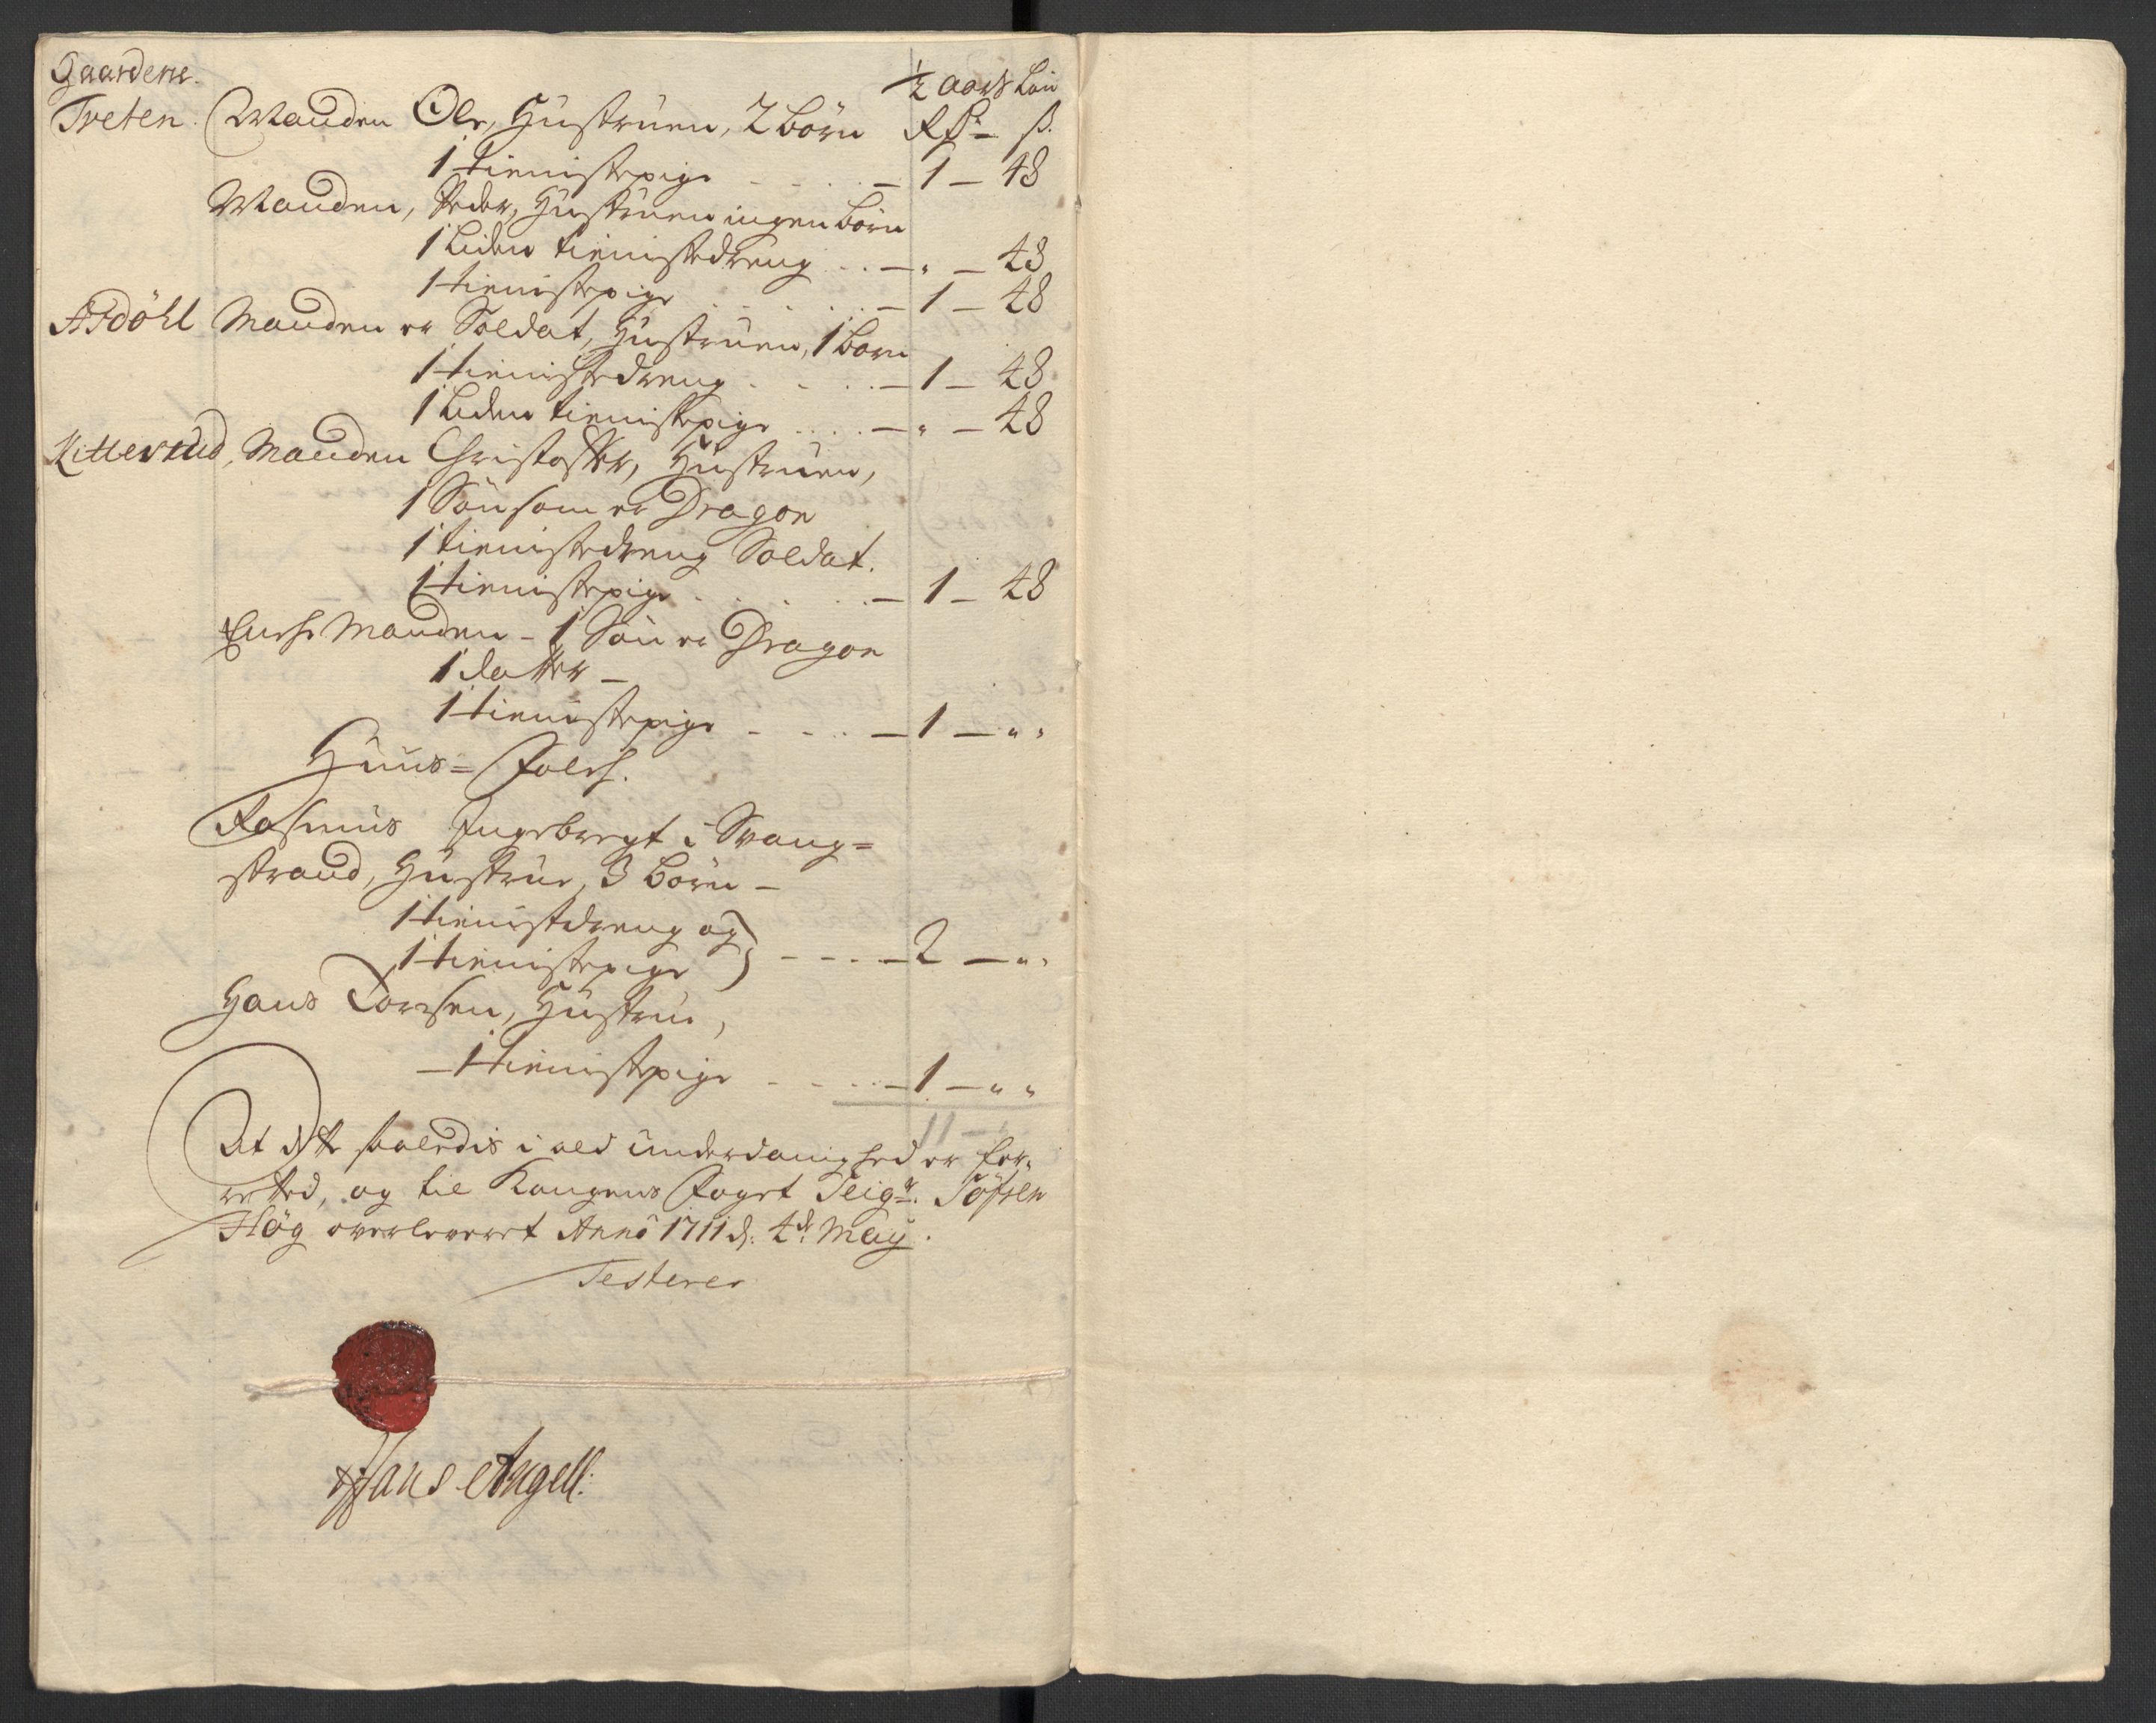 Gaardene. ½ aars Løn
Tveten. Manden Ole, Hustruen, 2 börn Rdr – ß.
1 tienistepige – 1 – 48
Manden, Peder, Hustruen ingen börn
1 liden tienistedreng – " – 48
1 tienistepige – 1 – 48
Asdöhl Manden er Soldat, Hustruen, 1 barn
1 tienistedreng – 1 – 48
1 liden tienistepige – " – 48
Kittersrud, Manden Christoffer, Hustruen,
1 Sön som er Dragon
1 tienistedreng Soldat.
1 tienistepige – 1 – 48
Manden – 1 Sön er Dragon
1 datter –
1 tienistepige – 1 – " "
Huus = Folch.
Rasmus Ingebregt i Svang=
strand, Hustrue, 3 börn –
1 tienistedreng og
1 tienistepige } – 2 – " "
Hans Larsen, Hustrue,
– 1 tienistepige – 1 – " "
11 –
At dette saaledis i ald underdanighed er for,
rettet, og til Kongens Foget Seigr. Töfsen
Høg overleveret Anno 1711 d. 4de May.
Testerer
Hans Angell.